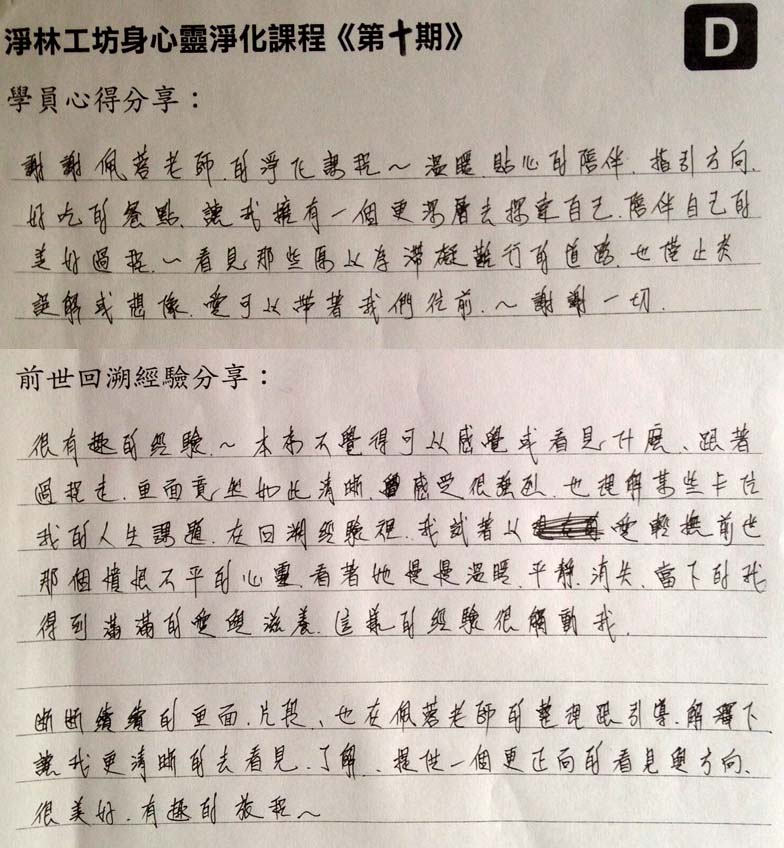 淨林工坊身心靈淨化課程《第十期》
D
學員心得分享：
謝謝佩蓉老師的淨化課程～溫暖.貼心的陪伴.指引方向.
好吃的餐點、讓我擁有一個更深層去探索自己.陪伴自己的
美好過程.～看見那些原以為滯礙難行的道路.也僅止於
誤解或想像.愛可以帶著我們往前.～謝謝一切.
前世回溯經驗分享：
很有趣的經驗.～本來不覺得可以感覺或看見什麼、跟著
過程走.畫面竟然如此清晰.感受很強烈.也理解某些卡住
我的人生課題.在回溯經驗裡.我試著以愛輕撫前世
那個憤恨不平的心靈.看著她慢慢溫暖.平靜.消失.當下的我
得到滿滿的愛與滋養.這樣的經驗很觸動我.
斷斷續續的畫面.片段、也在佩蓉老師的整理跟引導.解釋下
讓我更清晰的去看見.了解、提供一個更正向的看見與方向、
很美好.有趣的旅程～